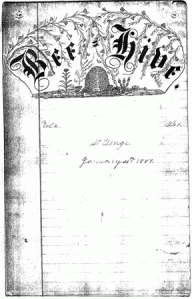 Bee=Hive.
Vol.
No.
St George
January 1st 1887.